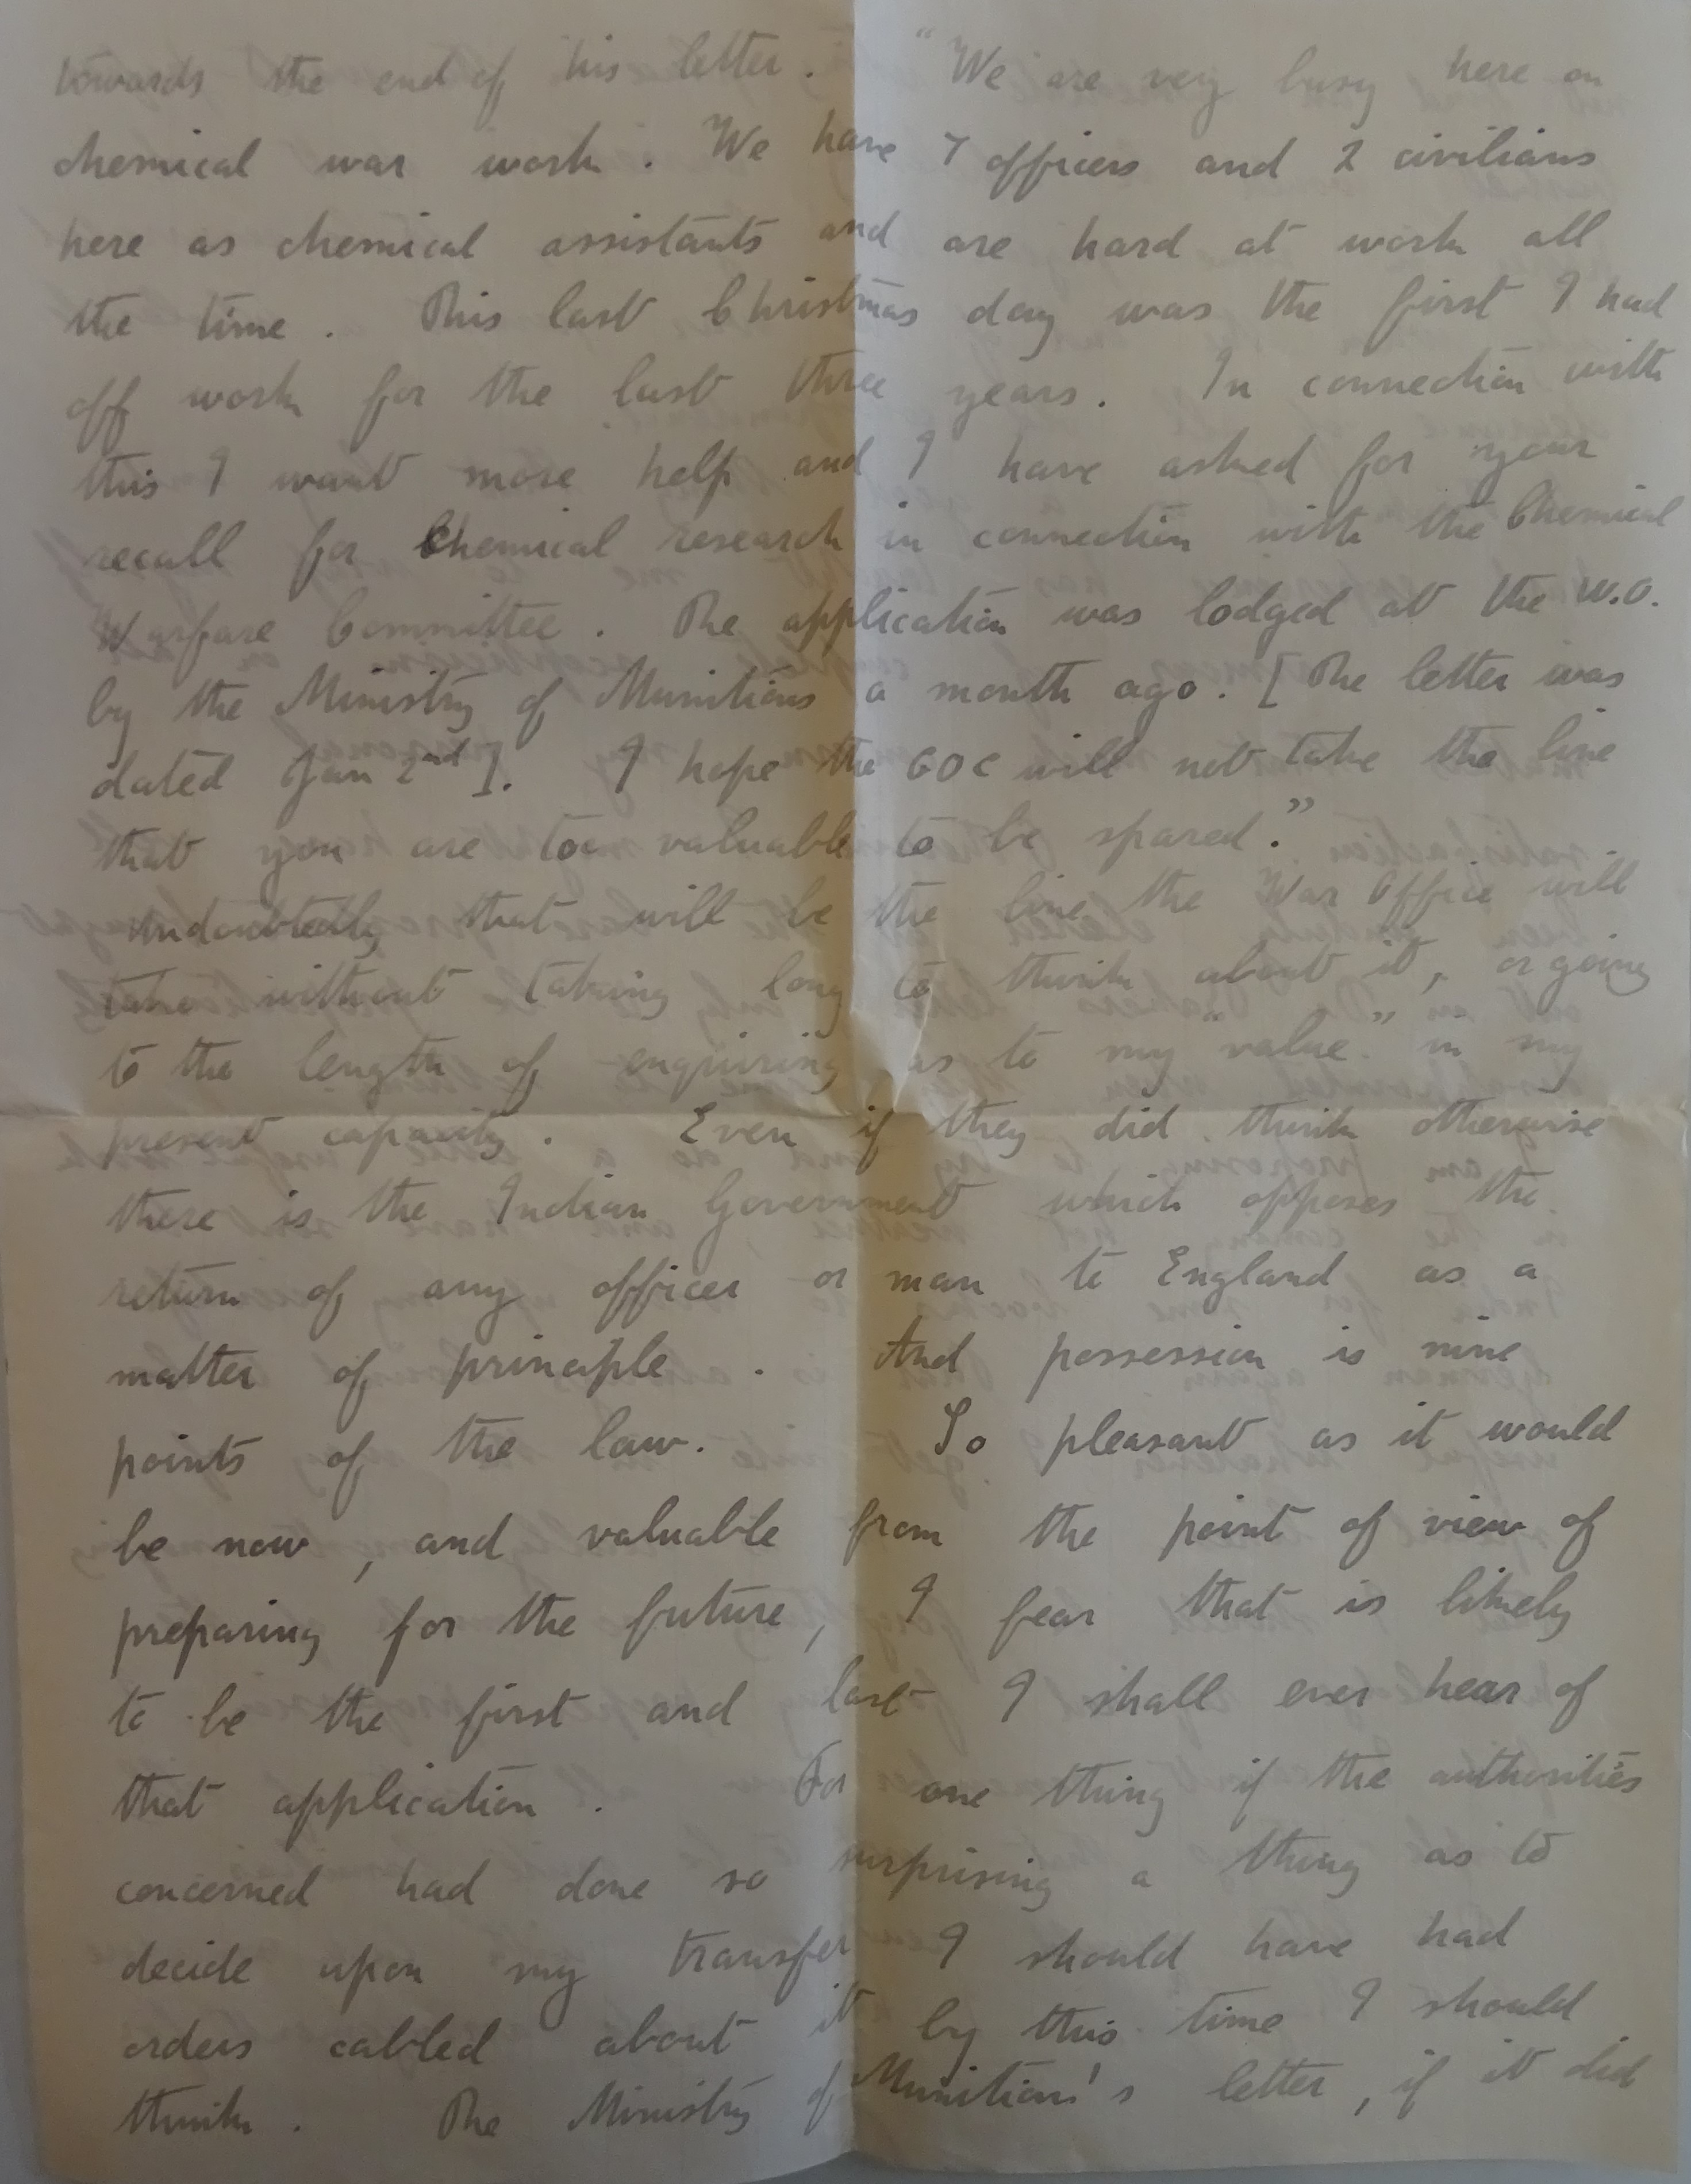 towards the end of his letter. "We are very busy here on
chemical war work. We have 7 officers and 2 civilians
here as chemical assistants and are hard at work all
the time. This last Christmas day was the first I had
off work for the last three years. In connection with
this I want more help and I have asked for your
recall for Chemical research in connection with the Chemical
Warfare Committee. The application was lodged at the W.O.
by the Ministry of Munitions a month ago. [The letter was
dated Jan 2nd]. I hope the GOC will not take the line
that you are too valuable to be spared."
Undoubtedly that will be the line the War Office will
take without taking long to think about it, or going
to the length of enquiring as to my "value" in my
present capacity. Even if they did think otherwise
there is the Indian Government which opposes the
return of any officer or man to England as a
matter of principle. And possession is nine
points of the law. So pleasant as it would
be now, and valuable from the point of view of
preparing for the future, I fear that is likely
to be the first and last I shall ever hear of
that application. For one thing if the authorities
concerned had done so surprising a thing as to
decide upon my transfer I should have had
orders cabled about it by this time I should
think. The Ministry of Munition's letter, if it did